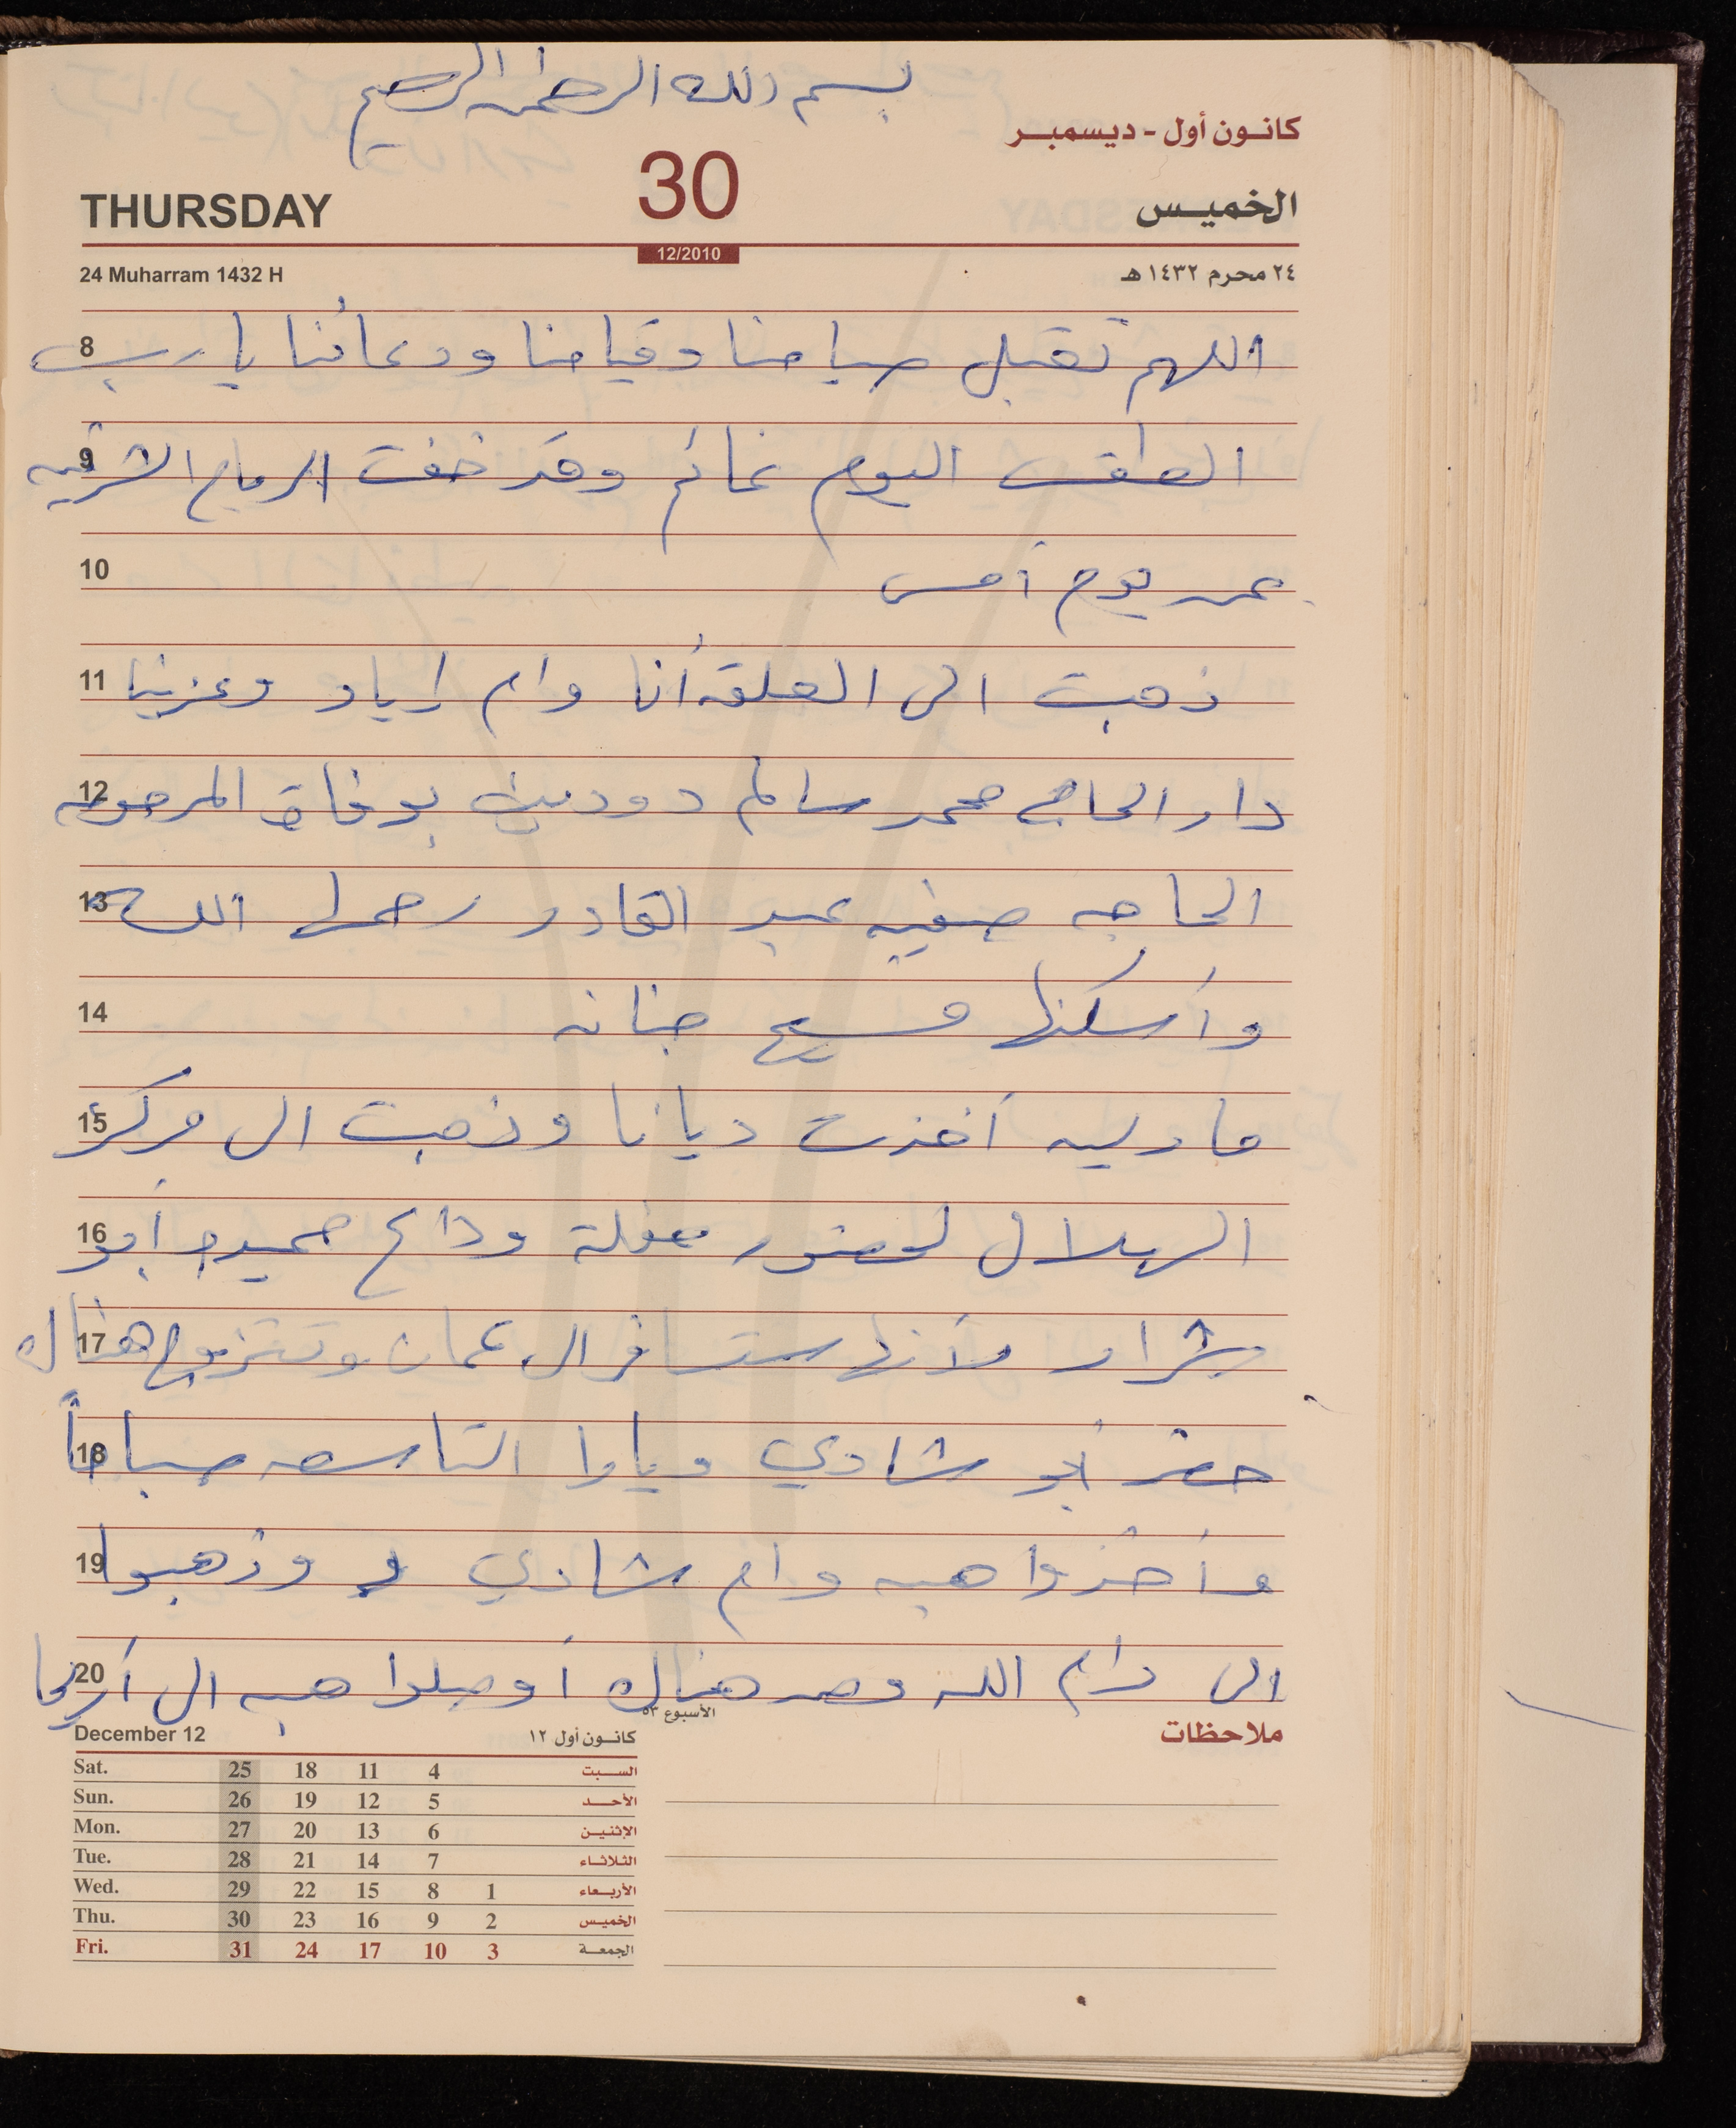 بسم الله الرحمن الرحيم
كانون أول - ديسمبر
THURSDAY 30 الخميس
12/2010
24 Muharram 1432 H ٢٤ محرم ١٤٣٢ هـ
8 اللهم تقبل صيامنا وقيامنا ودعائنا يا رب
9 الطقس اليوم غائم وقد خفت الرياح الشرقيه
10 عن يوم أمس
11 ذهبت الى العلقه أنا وام اياد وعزينا
12 دار الحاج محمد سالم دودين بوفاة المرحومه
13 الحاجه صفيه عبد القادر رحمها الله
14 وأسكنها فسيح جنانه
15 مادلين أخذت ديانا وذهبت الى مركز
16 الهلال لحضور حفلة وداع أبو
17 شرار لأنها ستسافر الى عمان وتتزوج هناك
18 حضر أبو شادي ويارا التاسعه صباحاً
19 وأخذوا هبه وام شادي و وذهبوا
20 الى رام الله ومن هناك أوصلوا هبه الى أريحا
الأسبوع ٥٣
ملاحظات
December 12 كانون أول ١٢
Sat. 25 18 11 4 السبت
Sun. 26 19 12 5 الأحد
Mon. 27 20 13 6 الإثنين
Tue. 28 21 14 7 الثلاثاء
Wed. 29 22 15 8 1 الأربعاء
Thu. 30 23 16 9 2 الخميس
Fri. 31 24 17 10 3 الجمعة